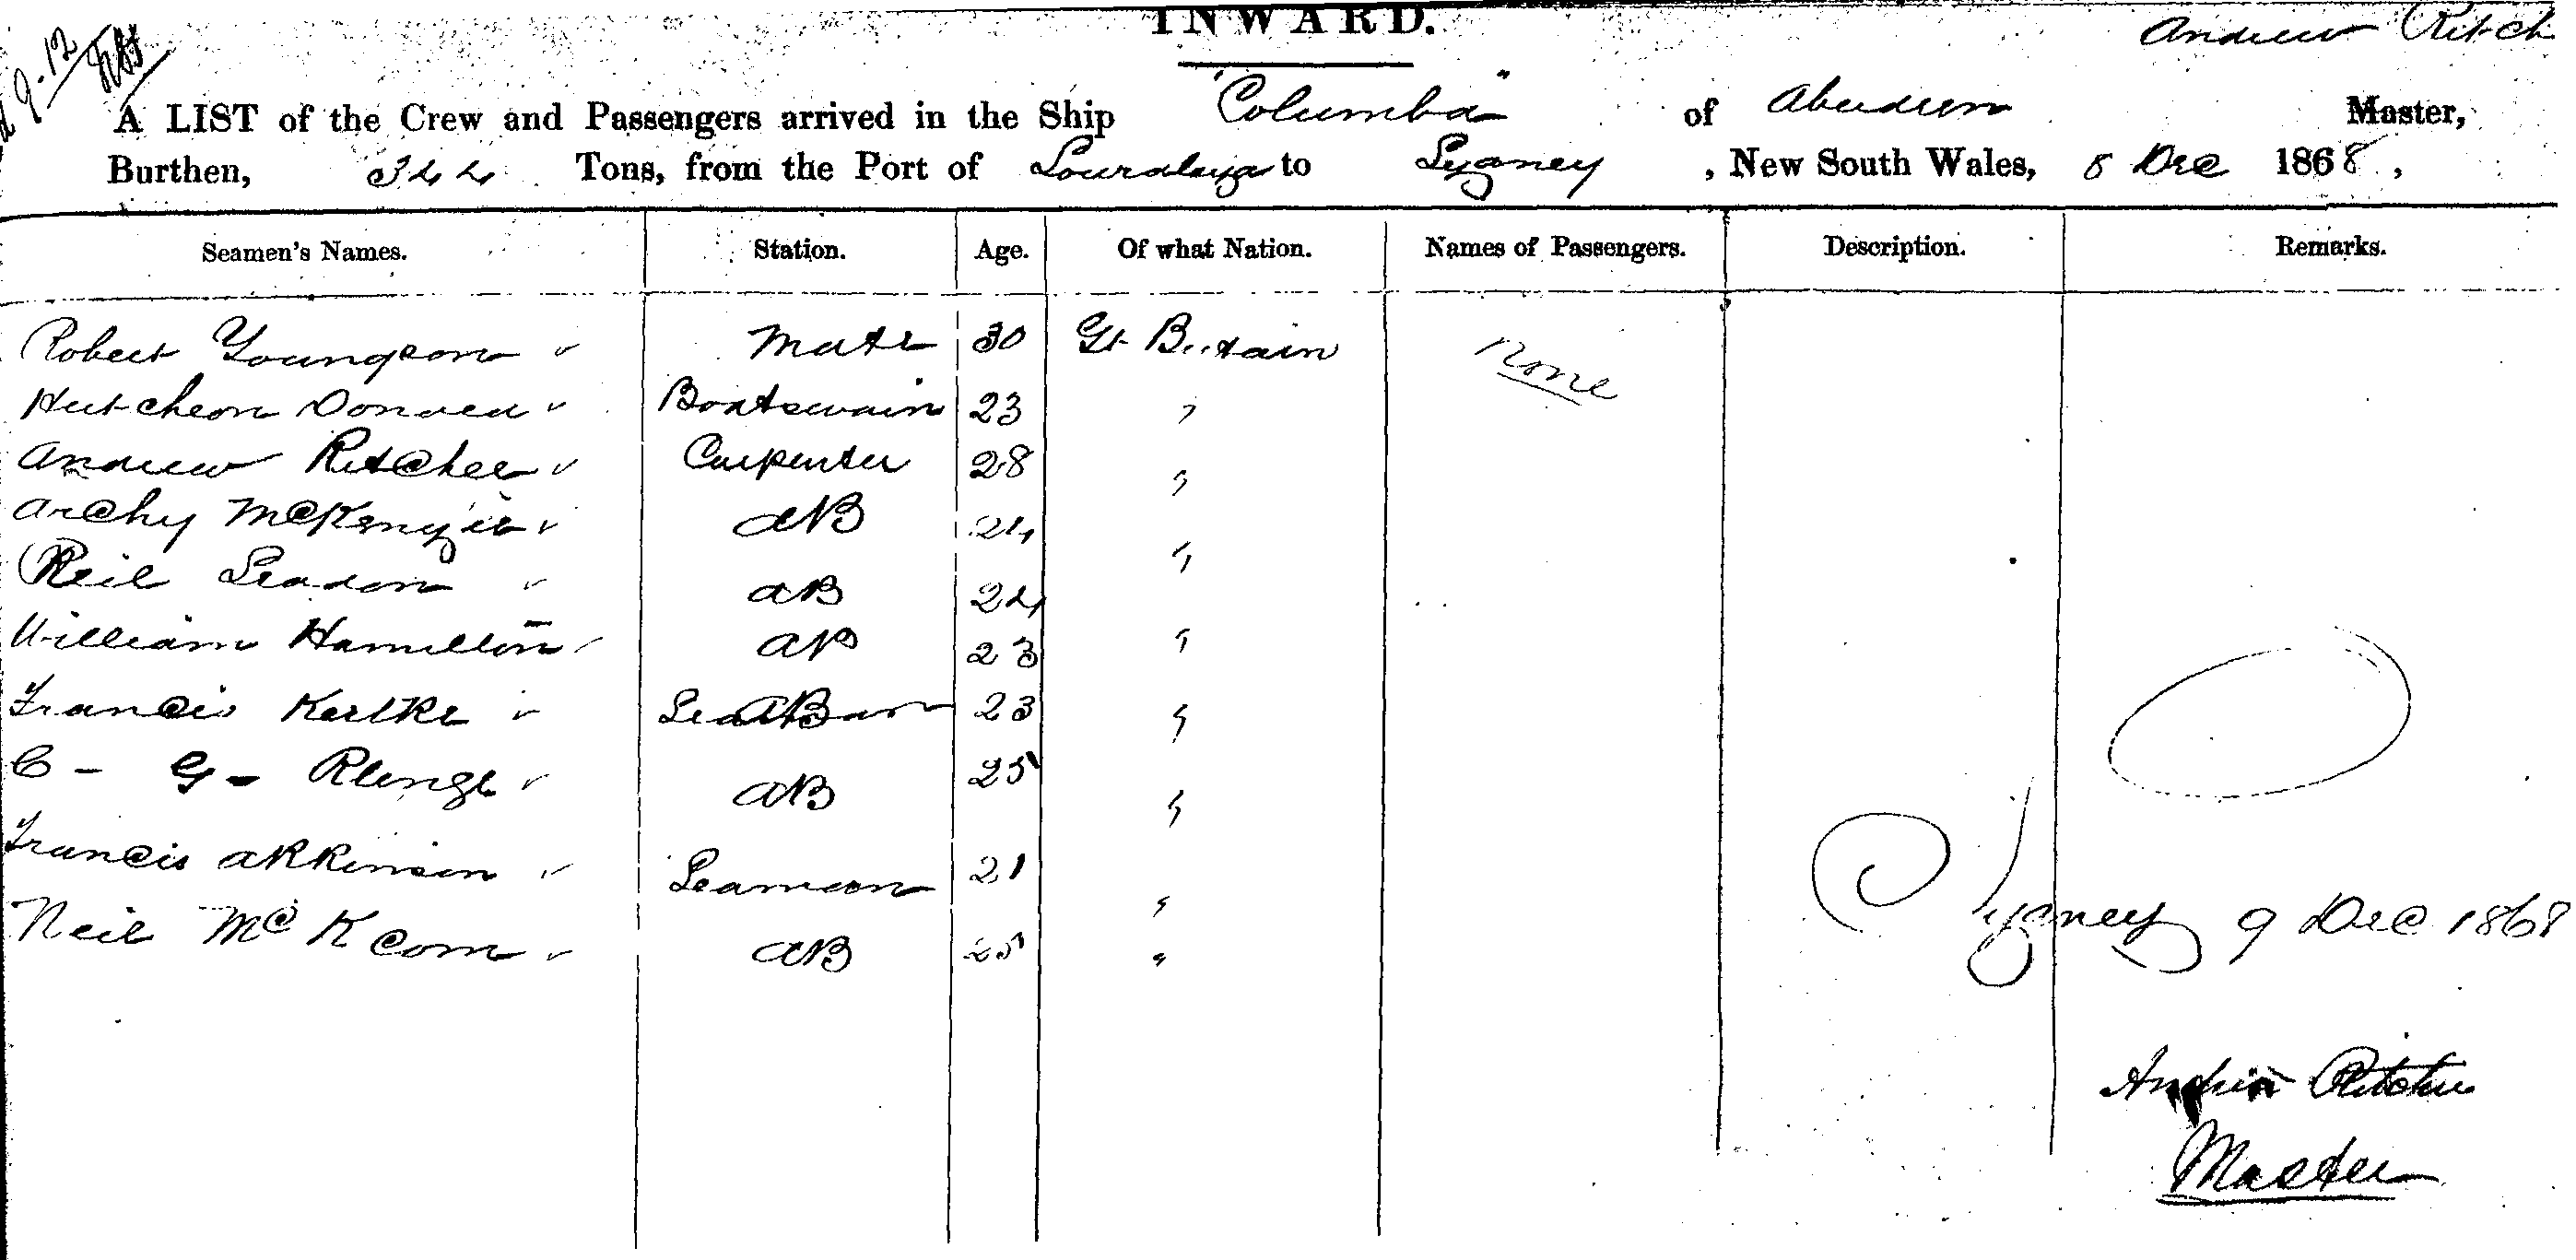 INWARD.
Andrew Ritch
9-12
A LIST of the Crew and Passengers arrived in the Ship "Columba" of Aberdeen Master,
Burthen, 344 Tons, from the Port of Souralaya to Sydney, New South Wales, 8 Dec 1868,
Seamen's Names. Station. Age. Of what Nation. Names of Passengers. Description. Remarks.
Robert Youngson Mate 30 Gt Britain None
Hutcheon Boatswain 23 "
Andrew Ritchee Carpenter 28 "
Archy McKenzie AB 24 "
Neil AB 24 "
William Hamilton AB 23 "
Francis AB 23 "
C - G - AB 25 "
Francis Seaman 21 "
Neil Mc AB 25 "
Sydney 9 Dec 1868
Andrew Ritchie
Master